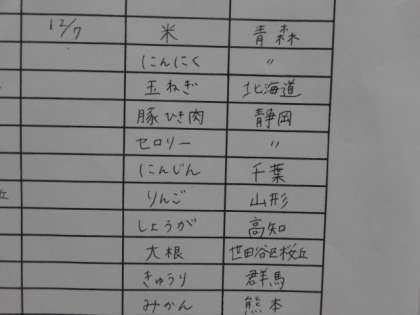 12/7 米 青森
にんにく 〃
玉ねぎ 北海道
豚ひき肉 静岡
セロリー 〃
にんじん 千葉
りんご 山形
しょうが 高知
大根 世田谷区桜丘
きゅうり 群馬
みかん 熊本